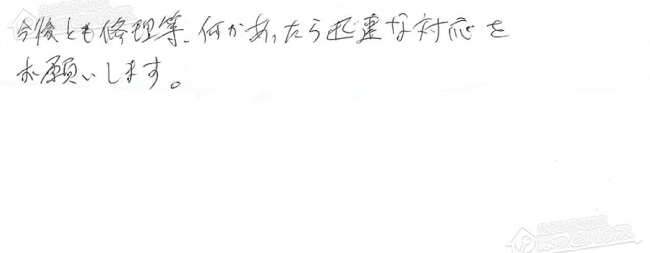 今後とも修理等、何かあったら迅速な対応を
お願いします。